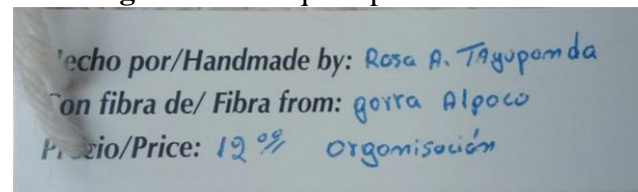 Hecho por/Handmade by: Rosa A. TAyupanda
Con fibra de/ Fibra from: gorra Alpoco
Precio/Price: 12 00 orgonisoción